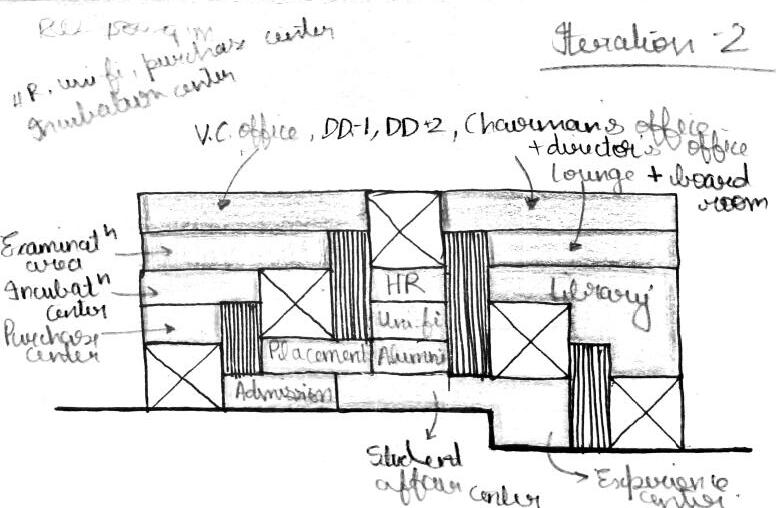 Iteration - 2
HR. uni.fi, purchase center
Incubation center
V.C. office, DD-1, DD-2, Chairman's office
+ director's office
lounge + board
room
Examinatⁿ
area
Incubatⁿ
center
Purchase
center
HR
Uni.fi
Library
Placement
Alumni
Admission
Student
affair center
Experience
center.